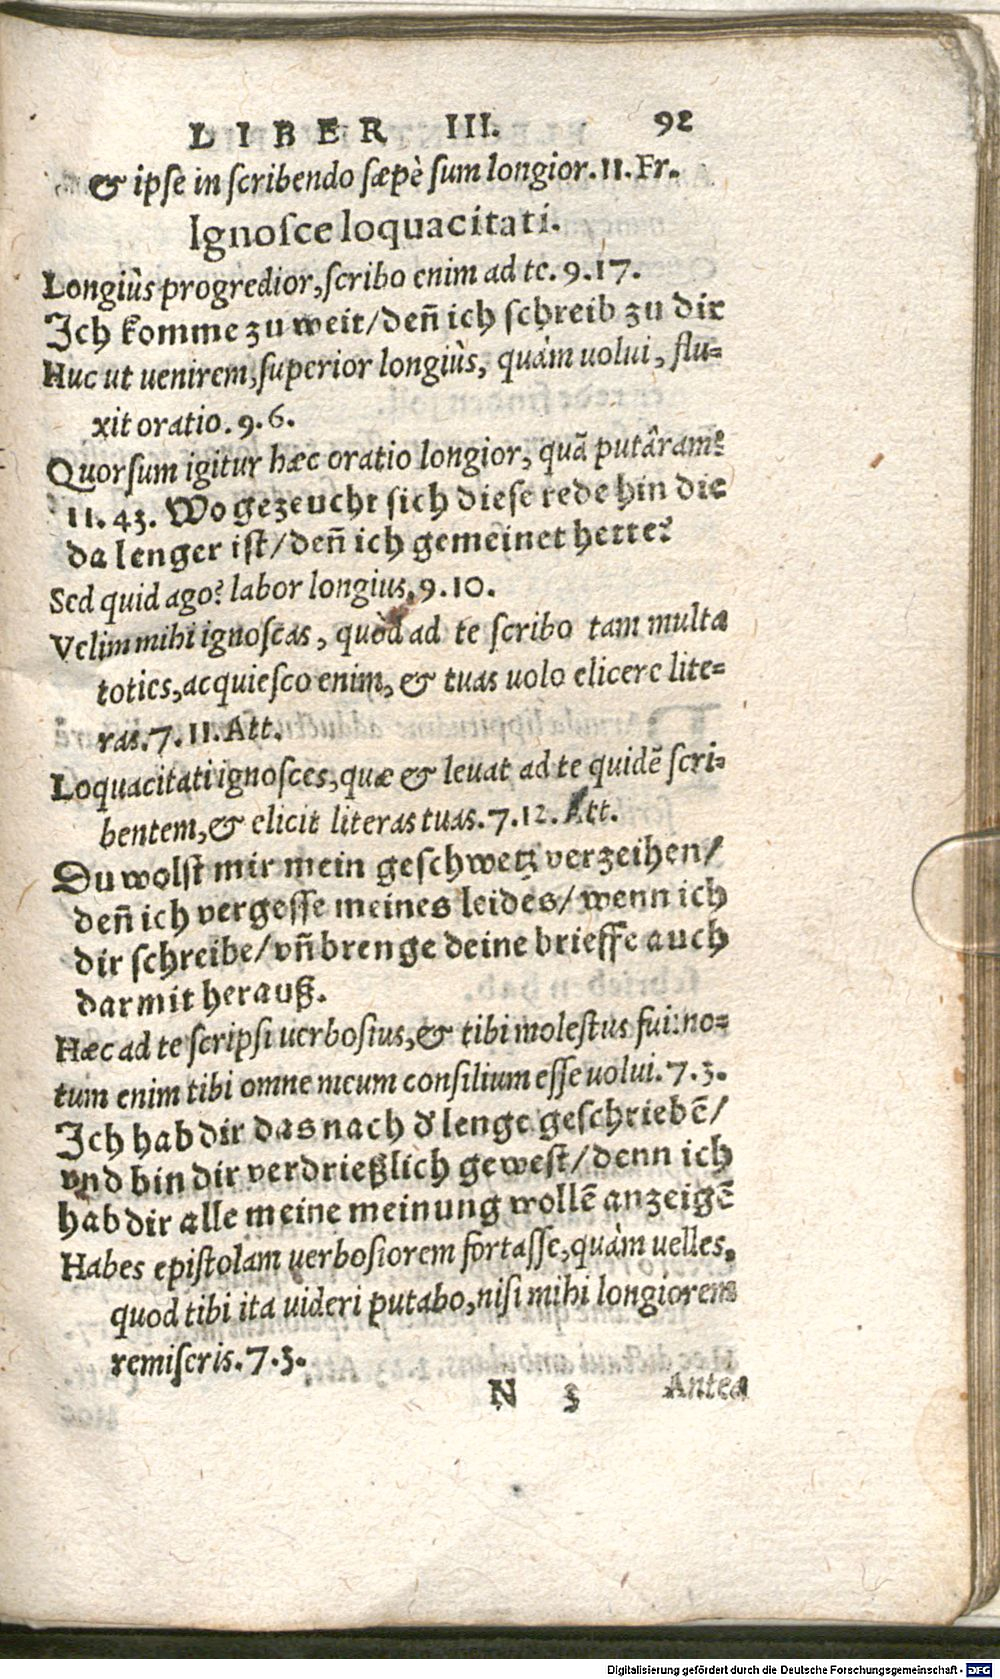 LIBER III. 92
& ipse in scribendo sæpè sum longior. 11. Fr.
Ignosce loquacitati.
Longiùs progredior, scribo enim ad te. 9. 17.
Ich komme zu weit / deñ ich schreib zu dir
Huc ut uenirem, superior longiùs, quàm uolui, flu-
xit oratio. 9. 6.
Quorsum igitur hæc oratio longior, quã putâram?
11. 43. Wo gezeucht sich diese rede hin die
da lenger ist / deñ ich gemeinet hette?
Sed quid ago? labor longius. 9. 10.
Velim mihi ignoscas, quòd ad te scribo tam multa
toties, acquiesco enim, & tuas uolo elicere lite-
ras. 7. 11. Att.
Loquacitati ignosces, quæ & leuat ad te quidẽ scri-
bentem, & elicit literas tuas. 7. 12. Att.
Du wolst mir mein geschwetz verzeihen /
deñ ich vergesse meines leides / wenn ich
dir schreibe / vñ brenge deine brieffe auch
darmit herauß.
Hæc ad te scripsi uerbosius, & tibi molestus fui: no-
tum enim tibi omne meum consilium esse uolui. 7. 3.
Ich hab dir das nach d' lenge geschriebẽ /
vnd bin dir verdrießlich gewest / denn ich
hab dir alle meine meinung wollẽ anzeigẽ
Habes epistolam uerbosiorem fortasse, quàm uelles,
quod tibi ita uideri putabo, nisi mihi longiorem
remiseris. 7. 3.
N 3 Antea
Digitalisierung gefördert durch die Deutsche Forschungsgemeinschaft - DFG